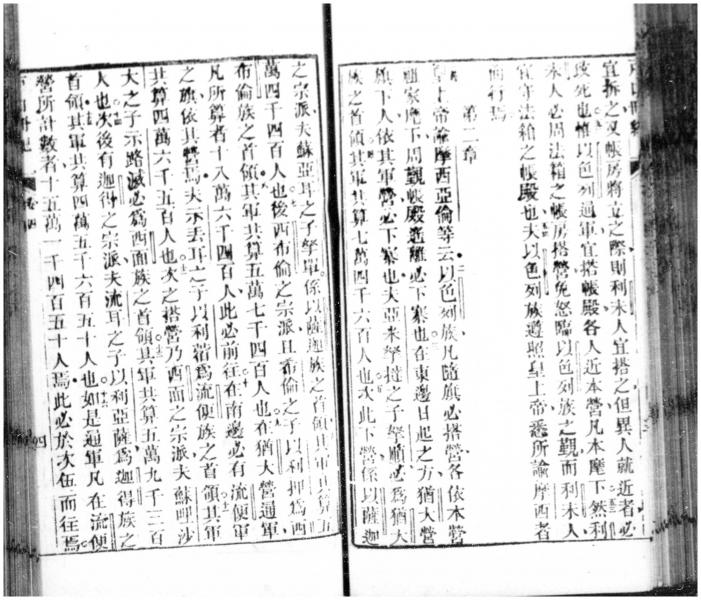 戶口冊紀
宜拆之又帳房將立之際則利未人宜搭之但異人就近者必
致死也惟以色列通軍宜搭帳殿各人近本營凡本摩下然利
本人必周法箱之帳房搭營免怒臨以色列族之觐而利未人
宜守法箱之帳殿也夫以色列族遵照皇上帝悉所諭摩西者
而行焉
第二章
皇上帝諭摩西亞倫等云以色列族凡隨旗必搭營各依本營
祖家摩下周觀帳殿遙離必下寨也在東邊日起之方猶大營
旗下人依其軍營必下寨也夫亞米拏撻之子拏順必爲猶大
族之首領其軍共算七萬四千六百人也次此下營係以薩迦
之宗派夫蘇亞耳之子拏單係以薩迦族之首領其軍共算五
萬四千四百人也後西布倫之宗派且希倫之子以利押爲西
布倫族之首領其軍共算五萬七千四百人也在猶大營通軍
凡所算者十八萬六千四百人此必前往在南邊必有流便軍
之旗依其營焉夫示丟耳之子以利宿爲流便族之首領其軍
共算四萬六千五百人也次之搭營乃西面之宗派夫蘇哩沙
大之子示路滅必爲西面族之首領其軍共算五萬九千三百
人也次後有迦得之宗派夫流耳之子以利亞薩爲迦得族之
首領其軍共算四萬五千六百五十人也如是通軍凡在流便
營所計數者十五萬一千四百五十人焉此必於次伍而往焉
戶口冊紀
卷四
四